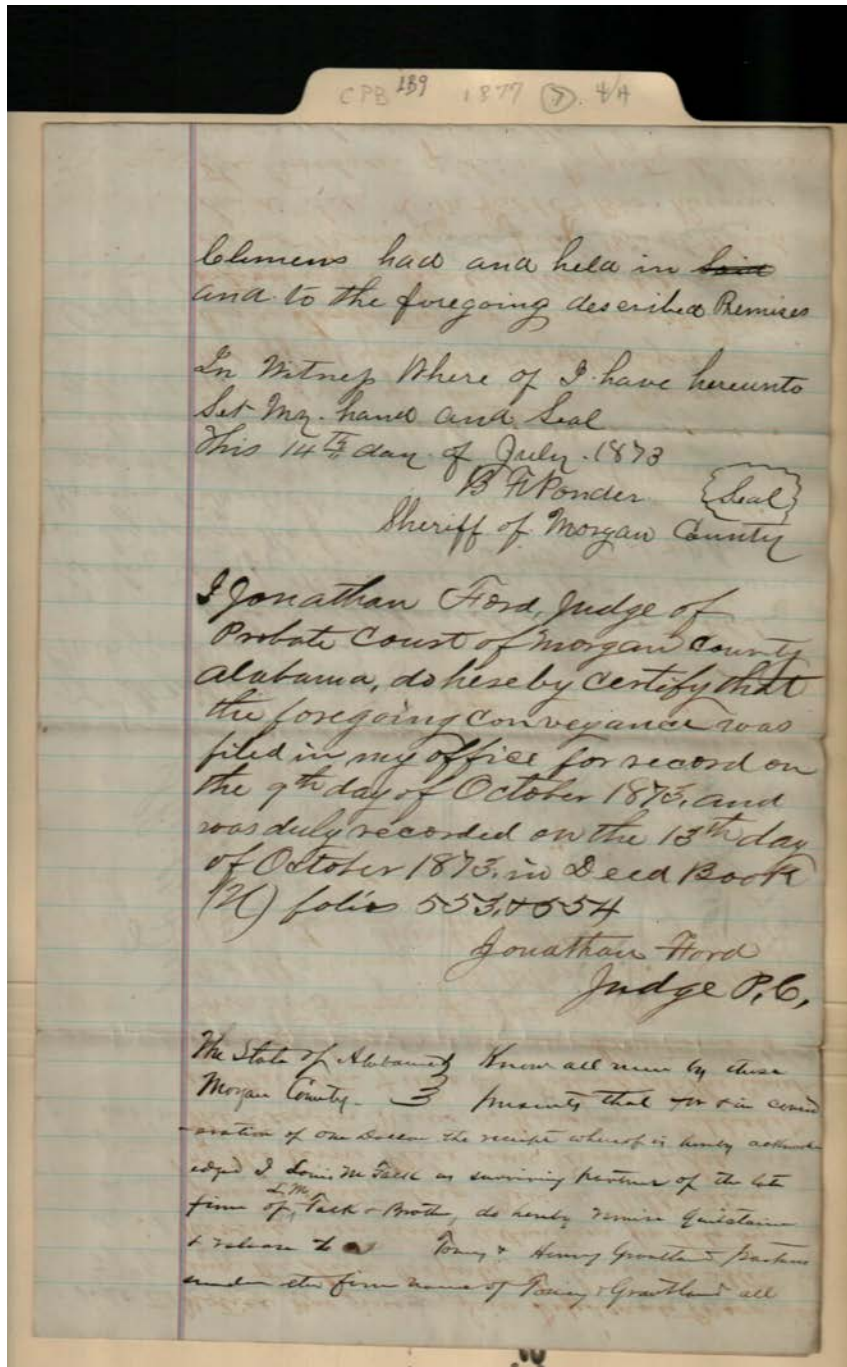 CPB 189 1877 (7). 4/A
Clemens had and held in said
and to the foregoing described Remises
In Witness Where of I have hereunto
Set My hand and Seal
This 14th day of July 1873
B F Ponder Seal
Sheriff of Morgan County
I Jonathan Ford, Judge of
Probate Court of Morgan County
Alabama, do hereby certify that
the foregoing conveyance was
filed in my office for record on
the 9th day of October 1873, and
was duly recorded on the 13th day
of October 1873, in Deed Book
folios 553, & 554
Jonathan Ford
Judge P. C,
The State of Alabama } Know all men by these
Morgan County. } presents that for & in consid
-eration of one Dollar the receipt whereof is hereby acknowl
edged I Louis M Falk as surviving partner of the late
firm of L. M. Falk & Brother, do hereby remise Quitclaim
& release to Toney & Henry Grantland partners
under the firm name of Toney & Grantland all